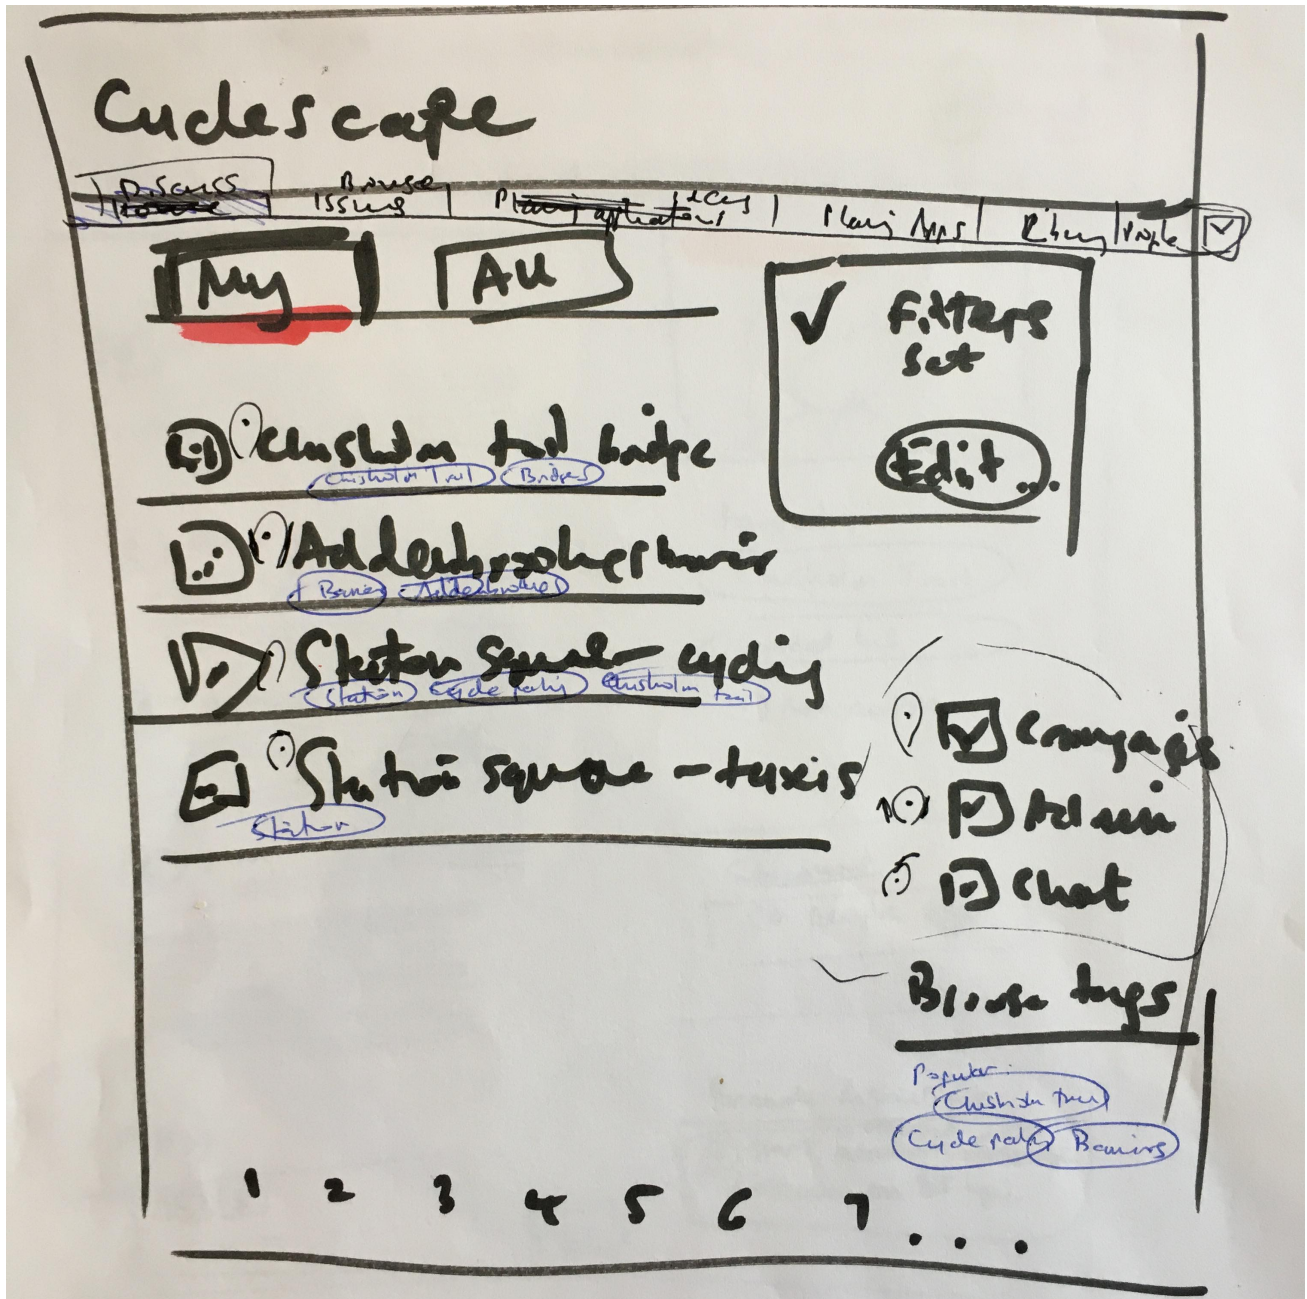 Cyclescape
Discuss
Browse
Issues
applications
Planning Apps
Library
People
My
All
✓ Filters
set
Edit...
Chisholm trail bridge
Chisholm Trail Bridges
Addenbrookes barrier
Barrier Addenbrookes
Station square - cycling
Station Cycle parking Chisholm trail
Station square - taxis
Station
Campaigns
Admin
Chat
Browse tags
Popular:
Chisholm trail
Cycle parking Barriers
1 2 3 4 5 6 7 ...